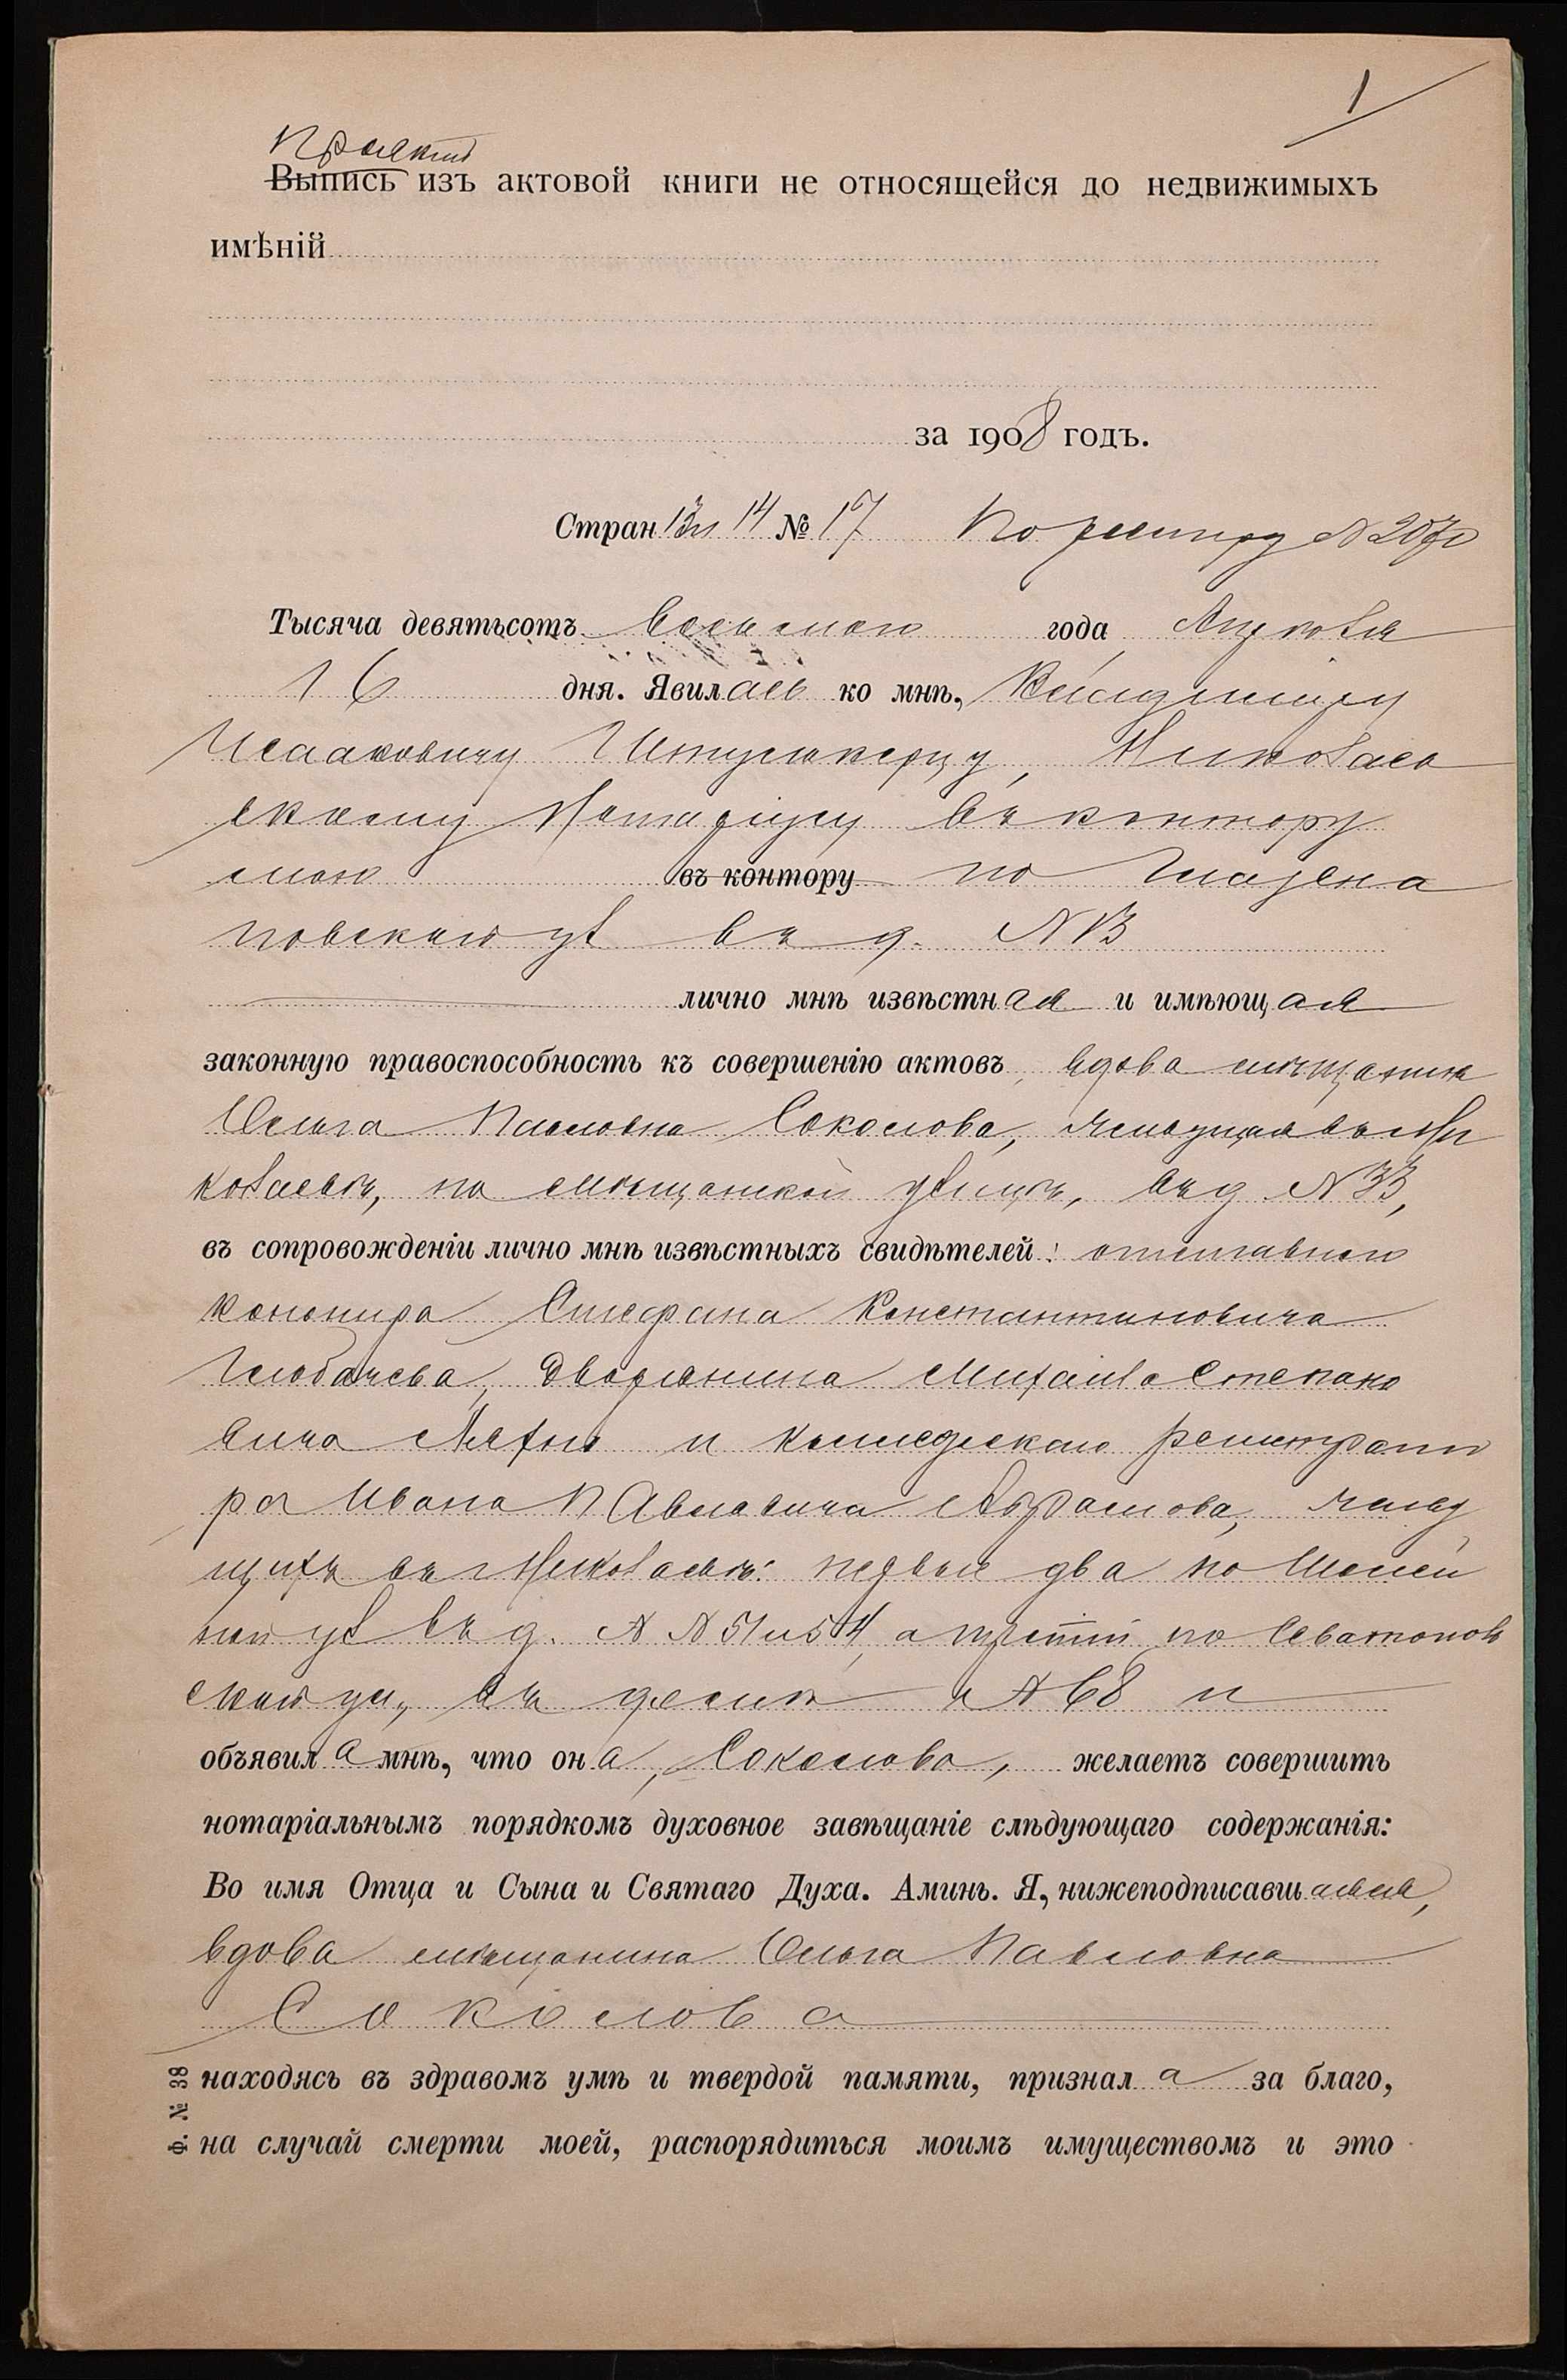 1
Проектъ
Выпись изъ актовой книги не относящейся до недвижимыхъ
имѣній
за 1908 годъ.
Стран 13 и 14 № 17 По реестру N 2070
Тысяча девятьсотъ восьмого года Апрѣля
16 дня. Явилась ко мнѣ,
Исааковичу Николаев
скому Нотаріусу въ контору
мою въ контору по Глазена
повской ул въ д. N 13
лично мнѣ извѣстная и имѣющая
законную правоспособность къ совершенію актовъ, вдова мѣщанина
Ольга Павловна Соколова, живущая въ г Ни
колаевѣ, на Мѣщанской улицѣ, въ д N 33,
въ сопровожденіи лично мнѣ извѣстныхъ свидѣтелей: отставного
Стефана Константиновича
Дворянина Михаила Степано
вича и Коллежскаго регистрато
ра Ивана Павловича Абрамова, живу
щихъ въ г Николаевѣ: первые два по
ной ул въ д. N N 51 и 54, а третій по
ской ул, въ домѣ N 68 и
объявила мнѣ, что она, Соколова, желаетъ совершить
нотаріальнымъ порядкомъ духовное завѣщаніе слѣдующаго содержанія:
Во имя Отца и Сына и Святаго Духа. Аминь. Я, нижеподписавшаяся,
вдова мѣщанина Ольга Павловна
Соколова
находясь въ здравомъ умѣ и твердой памяти, признала за благо,
на случай смерти моей, распорядиться моимъ имуществомъ и это
Ф. № 38